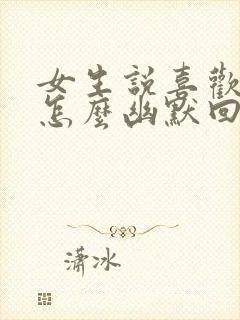 女生説喜歡
怎麼幽默回
瀟冰